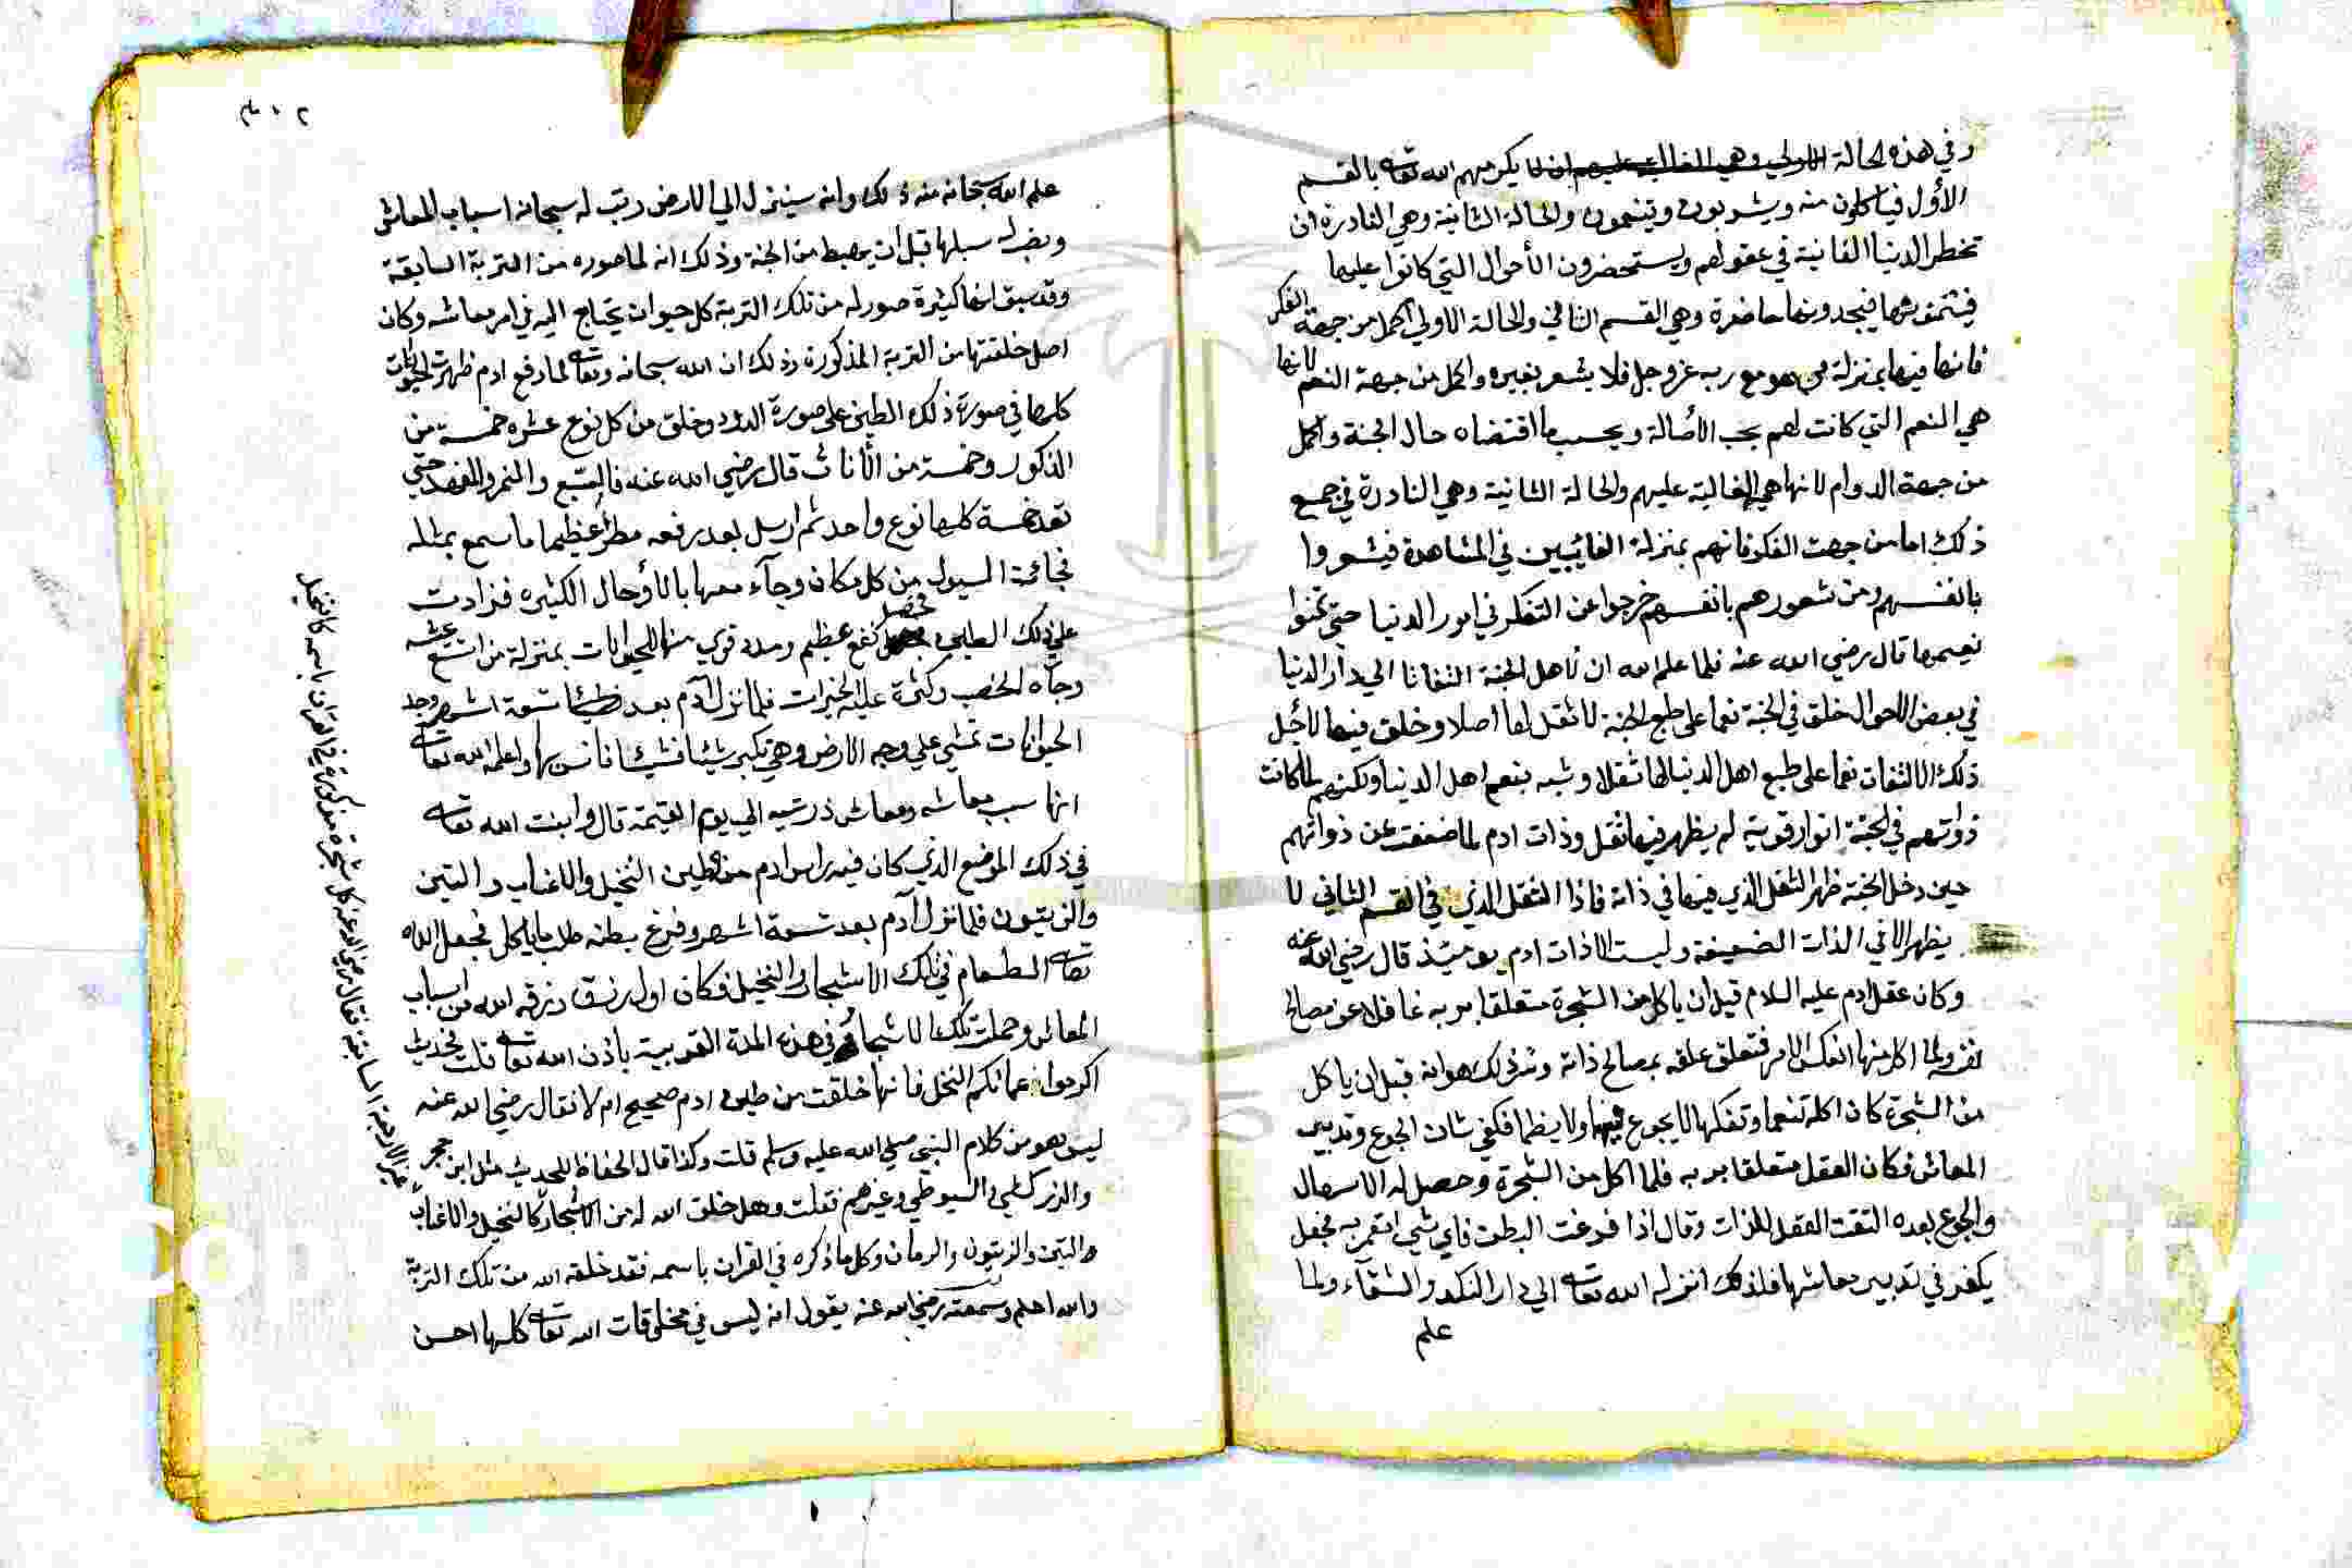 وفي هذه الحالة الاولى وهي الغالبة عليهم يكرمهم الله تعالى بالقسم
الأول فياكلون منه ويشربون ويتنعمون والحالة الثانية وهي النادرة ان
تخطر الدنيا الفانية في عقولهم ويستحضرون الأحوال التي كانوا عليها
فيتمنونها فيجدونها حاضرة وهي القسم الثاني والحالة الاولى اكمل من جهة الفكر
فانها فيها بمنزلة من هو مع ربه عز وجل فلا يشعر بغيره واكمل من جهة النعم لانها
هي النعم التي كانت لهم بحب الأصالة وبحسب ما اقتضاه حال الجنة واكمل
من جهة الدوام لانها هي الغالبة عليهم والحالة الثانية وهي النادرة في جميع
ذلك اما من جهت الفكر فانهم بمنزلة الغائبين في المشاهدة فيشعروا
بانفسهم ومن شعورهم بانفسهم خرجوا عن التفكر في امور الدنيا حتى تمنوا
نعيمها قال رضي الله عنه فلما علم الله ان لاهل الجنة التفاتا الي دار الدنيا
في بعض الاحوال خلق في الجنة نعما على طبع الجنة لا ثقل لها اصلا وخلق فيها لأجل
ذلك الالتفات نعما على طبع اهل الدنيا لها ثقلا وشبه بنعم اهل الدنيا ولكنهم لما كانت
ذواتهم في الجنة انوار قوية لم يظهر فيها ثقل وذات ادم لما ضعفت عن ذواتهم
حين دخل الجنة ظهر الثقل الذي فيها في ذاته فاذا الثقل الذي في القسم الثاني لا
يظهر الا في الذات الضعيفة وليست الا ذات ادم يومئذ قال رضي الله عنه
وكان عقل ادم عليه السلام قبل ان ياكل من الشجرة متعلقا بربه غافلا عن مصالح
نفسه ولما اكل منها انعكس الامر فتعلق عقله بمصالح ذاته وذلك هو انه قبل ان ياكل
من الشجرة كان اكله تنعما وتفكها لا يجوع فيها ولا يظما فكفي شان الجوع وتدبير
المعاش فكان العقل متعلقا بربه فلما اكل من الشجرة وحصل له الاسهال
والجوع بعده التفت العقل للذات وقال اذا فرغت البطن فاي شي اعمر به فجعل
يكفر في تدبير معاشها فلذلك انزله الله تعالى الي دار النكد والشقآء ولما
علم
علم الله سبحانه منه ذلك وانه سينزل الي الارض رتب له سبحانه اسباب المعاش
سبلها قبل ان يهبط من الجنة وذلك انه لما صوره من التربة السابقة
وقد سبق انها كثيرة صور له من تلك التربة كل حيوان يحتاج اليه في امر معاشه وكان
اصل خلقتها من التربة المذكورة وذلك ان الله سبحانه وتعالى لما رفع ادم ظهرت الحيوانات
كلها في صورة ذلك الطين على صورة الدود وخلق من كل نوع عشره خمسة من
الذكور وخمسة من الأناث قال رضي الله عنه فالضبع والنمر والفهد حتي
تعد خمسة كلها نوع واحد ثم ارسل بعد رفعه مطرا عظيما ما سمع بمثله
فجائت السيول من كل مكان وجآء معها بالأوحال الكثيره فزادت
علي ذلك الطين فحصل نفع عظيم ومدد قوي منها للحيوانات بمنزلة من اتسع عيشه
وجآه الخصب وكثرة عليه الخيرات فلما نزل آدم بعد تسعة اشهر وجد
الحيوانات تمشي علي وجه الارض وهي تكبر شيئا فشيئا فانس بها واعلمه الله تعالى
انها سبب معاشه ومعاش ذريته الي يوم القيمة قال وانبت الله تعالى
في ذلك الموضع الذي كان فيه راس ادم من الطين النخيل والاعناب والتين
والزيتون فلما نزل آدم بعد تسعة اشهر وفرغ بطنه طلب ما ياكل فجعل الله
تعالى الطعام في تلك الاشجار والنخيل فكان اول رزق رزقه الله من اسباب
المعاش وحملت تلك الاشجار في هذه المدة القريبة باذن الله تعالى قلت فحديث
اكرموا عماتكم النخل فانها خلقت من طين ادم صحيح ام لا فقال رضي الله عنه
ليس هو من كلام النبي صلي الله عليه وسلم قلت وكذا قال الحفاظ للحديث مثل ابن حجر
والزركشي والسيوطي وغيرهم فقلت وهل خلق الله له من الاشجار كالنخيل والاعناب
والتين والزيتون والرمان وكل ما ذكره في القران باسمه فقد خلقه الله من تلك التربة
والله اعلم وسمعته رضي الله عنه يقول انه ليس في مخلوقات الله تعالى كلها احسن
غير الاربعة السابقة فقال رضي الله عنه كل شجرة مذكورة في القران باسمه كالنخيل